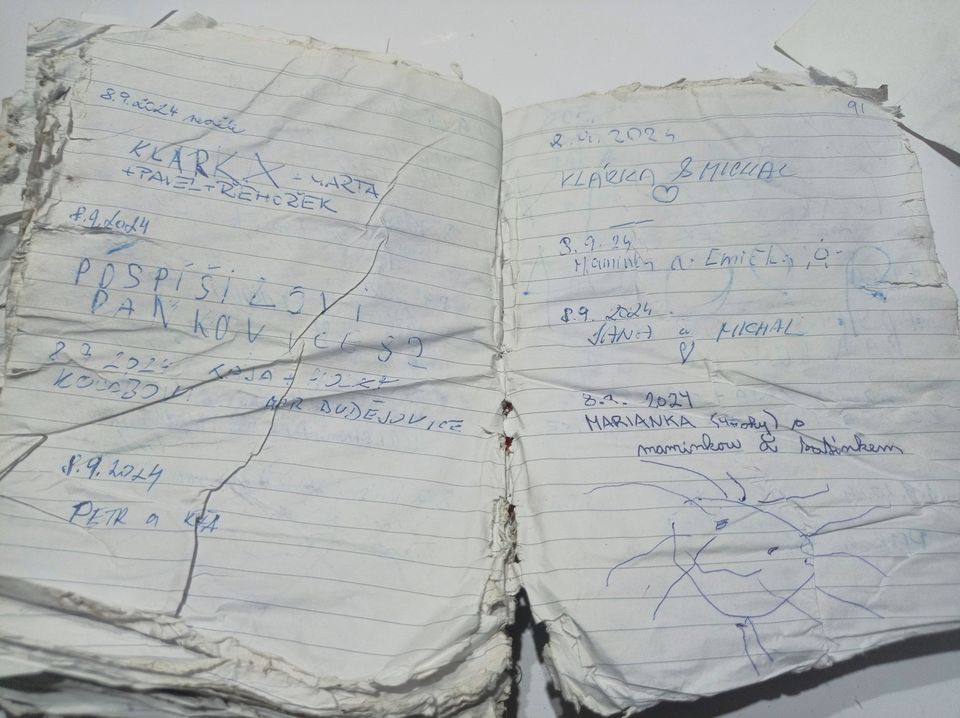 8.9.2024
KLÁRKA + MARTA
+ PAVEL + ŘEHOŘEK
8.9.2024
POSPÍŠILOVI
DAŇKOVVCEŠ
2024
BUDĚJOVICE
8.9.2024
PETR a
91
2024
KLÁRKA & MICHAL
8.9.24
Maminka a Emička
8.9.2024
JANA a MICHAL
2024
MARIANKA (4roky) s
maminkou a tatínkem